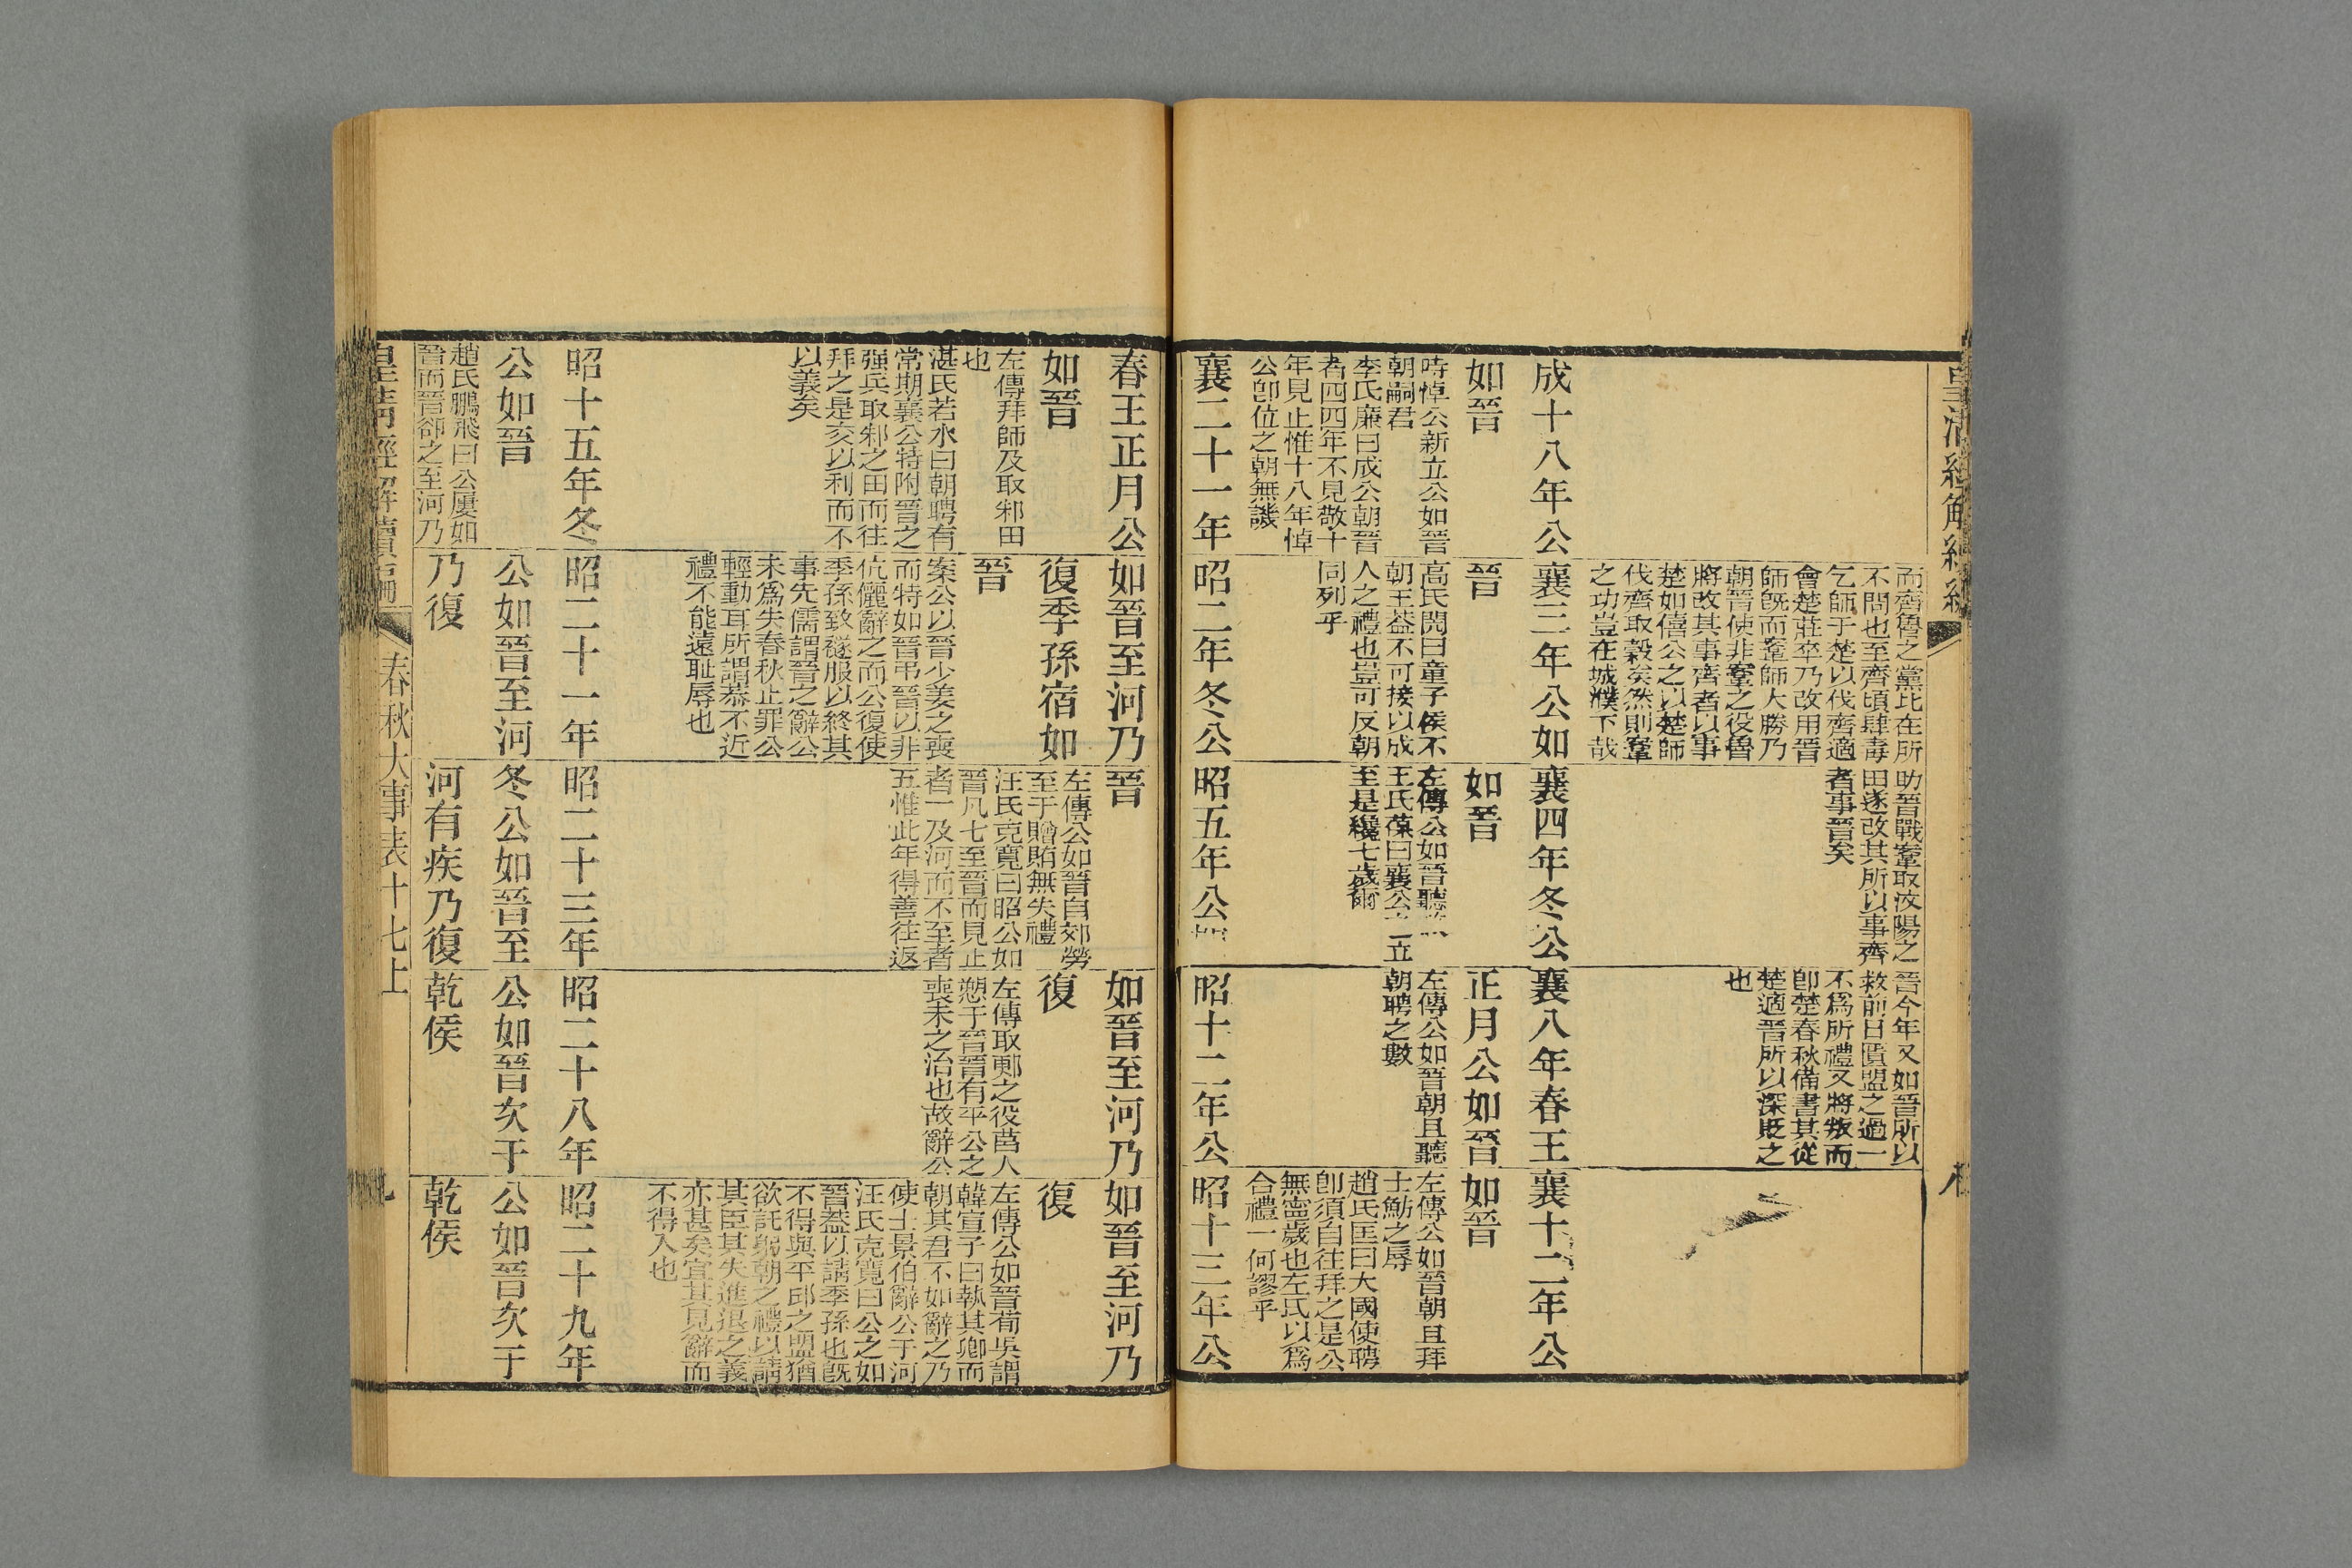 皇清經解續編
成十八年公
如晉
時悼公新立公如晉
朝嗣君
李氏廉曰成公朝晉
者四四年不見敬十
年見止惟十八年悼
公卽位之朝無譏
襄二十一年
而齊魯之黨比在所
不問也至齊頃肆毒
乞師于楚以伐齊適
會楚莊卒乃改用晉
師旣而鞌師大勝乃
朝晉使非鞌之役魯
將改其事齊者以事
楚如僖公之以楚師
伐齊取穀矣然則鞌
之功豈在城濮下哉
襄三年公如
晉
高氏閌曰童子侯不
朝王葢不可接以成
人之禮也豈可反朝
同列乎
昭二年冬公
助晉戰鞌取汶陽之
田遂改其所以事齊
者事晉矣
襄四年冬公
如晉
左傳公如晉聽
王氏葆曰襄公之立
至是纔七歲爾
昭五年公如
晉今年又如晉所以
救前日匱盟之過一
不爲所禮又將叛而
卽楚春秋備書其從
楚適晉所以深貶之
也
襄八年春王
正月公如晉
左傳公如晉朝且聽
朝聘之數
昭十二年公
襄十二年公
如晉
左傳公如晉朝且拜
士魴之辱
趙氏匡曰大國使聘
卽須自往拜之是公
無寧歲也左氏以爲
合禮一何謬乎
昭十三年公
春王正月公
如晉
左傳拜師及取邾田
也
湛氏若水曰朝聘有
常期襄公特附晉之
强兵取邾之田而往
拜之是交以利而不
以義矣
昭十五年冬
公如晉
趙氏鵬飛曰公屢如
晉而晉卻之至河乃
如晉至河乃
復季孫宿如
晉
案公以晉少姜之喪
而特如晉弔晉以非
伉儷辭之而公復使
季孫致襚服以終其
事先儒謂晉之辭公
未爲失春秋止罪公
輕動耳所謂恭不近
禮不能遠恥辱也
昭二十一年
公如晉至河
乃復
晉
左傳公如晉自郊勞
至于贈賄無失禮
汪氏克寬曰昭公如
晉凡七至晉而見止
者一及河而不至者
五惟此年得善往返
昭二十三年
冬公如晉至
河有疾乃復
如晉至河乃
復
左傳取郠之役莒人
愬于晉晉有平公之
喪未之治也故辭公
昭二十八年
公如晉次于
乾侯
如晉至河乃
復
左傳公如晉荀吳謂
韓宣子曰執其卿而
朝其君不如辭之乃
使士景伯辭公于河
汪氏克寬曰公之如
晉葢以請季孫也旣
不得與平邱之盟猶
欲託躬朝之禮以請
其臣其失進退之義
亦甚矣宜其見辭而
不得入也
昭二十九年
公如晉次于
乾侯
皇清經解續編
春秋大事表十七上
九